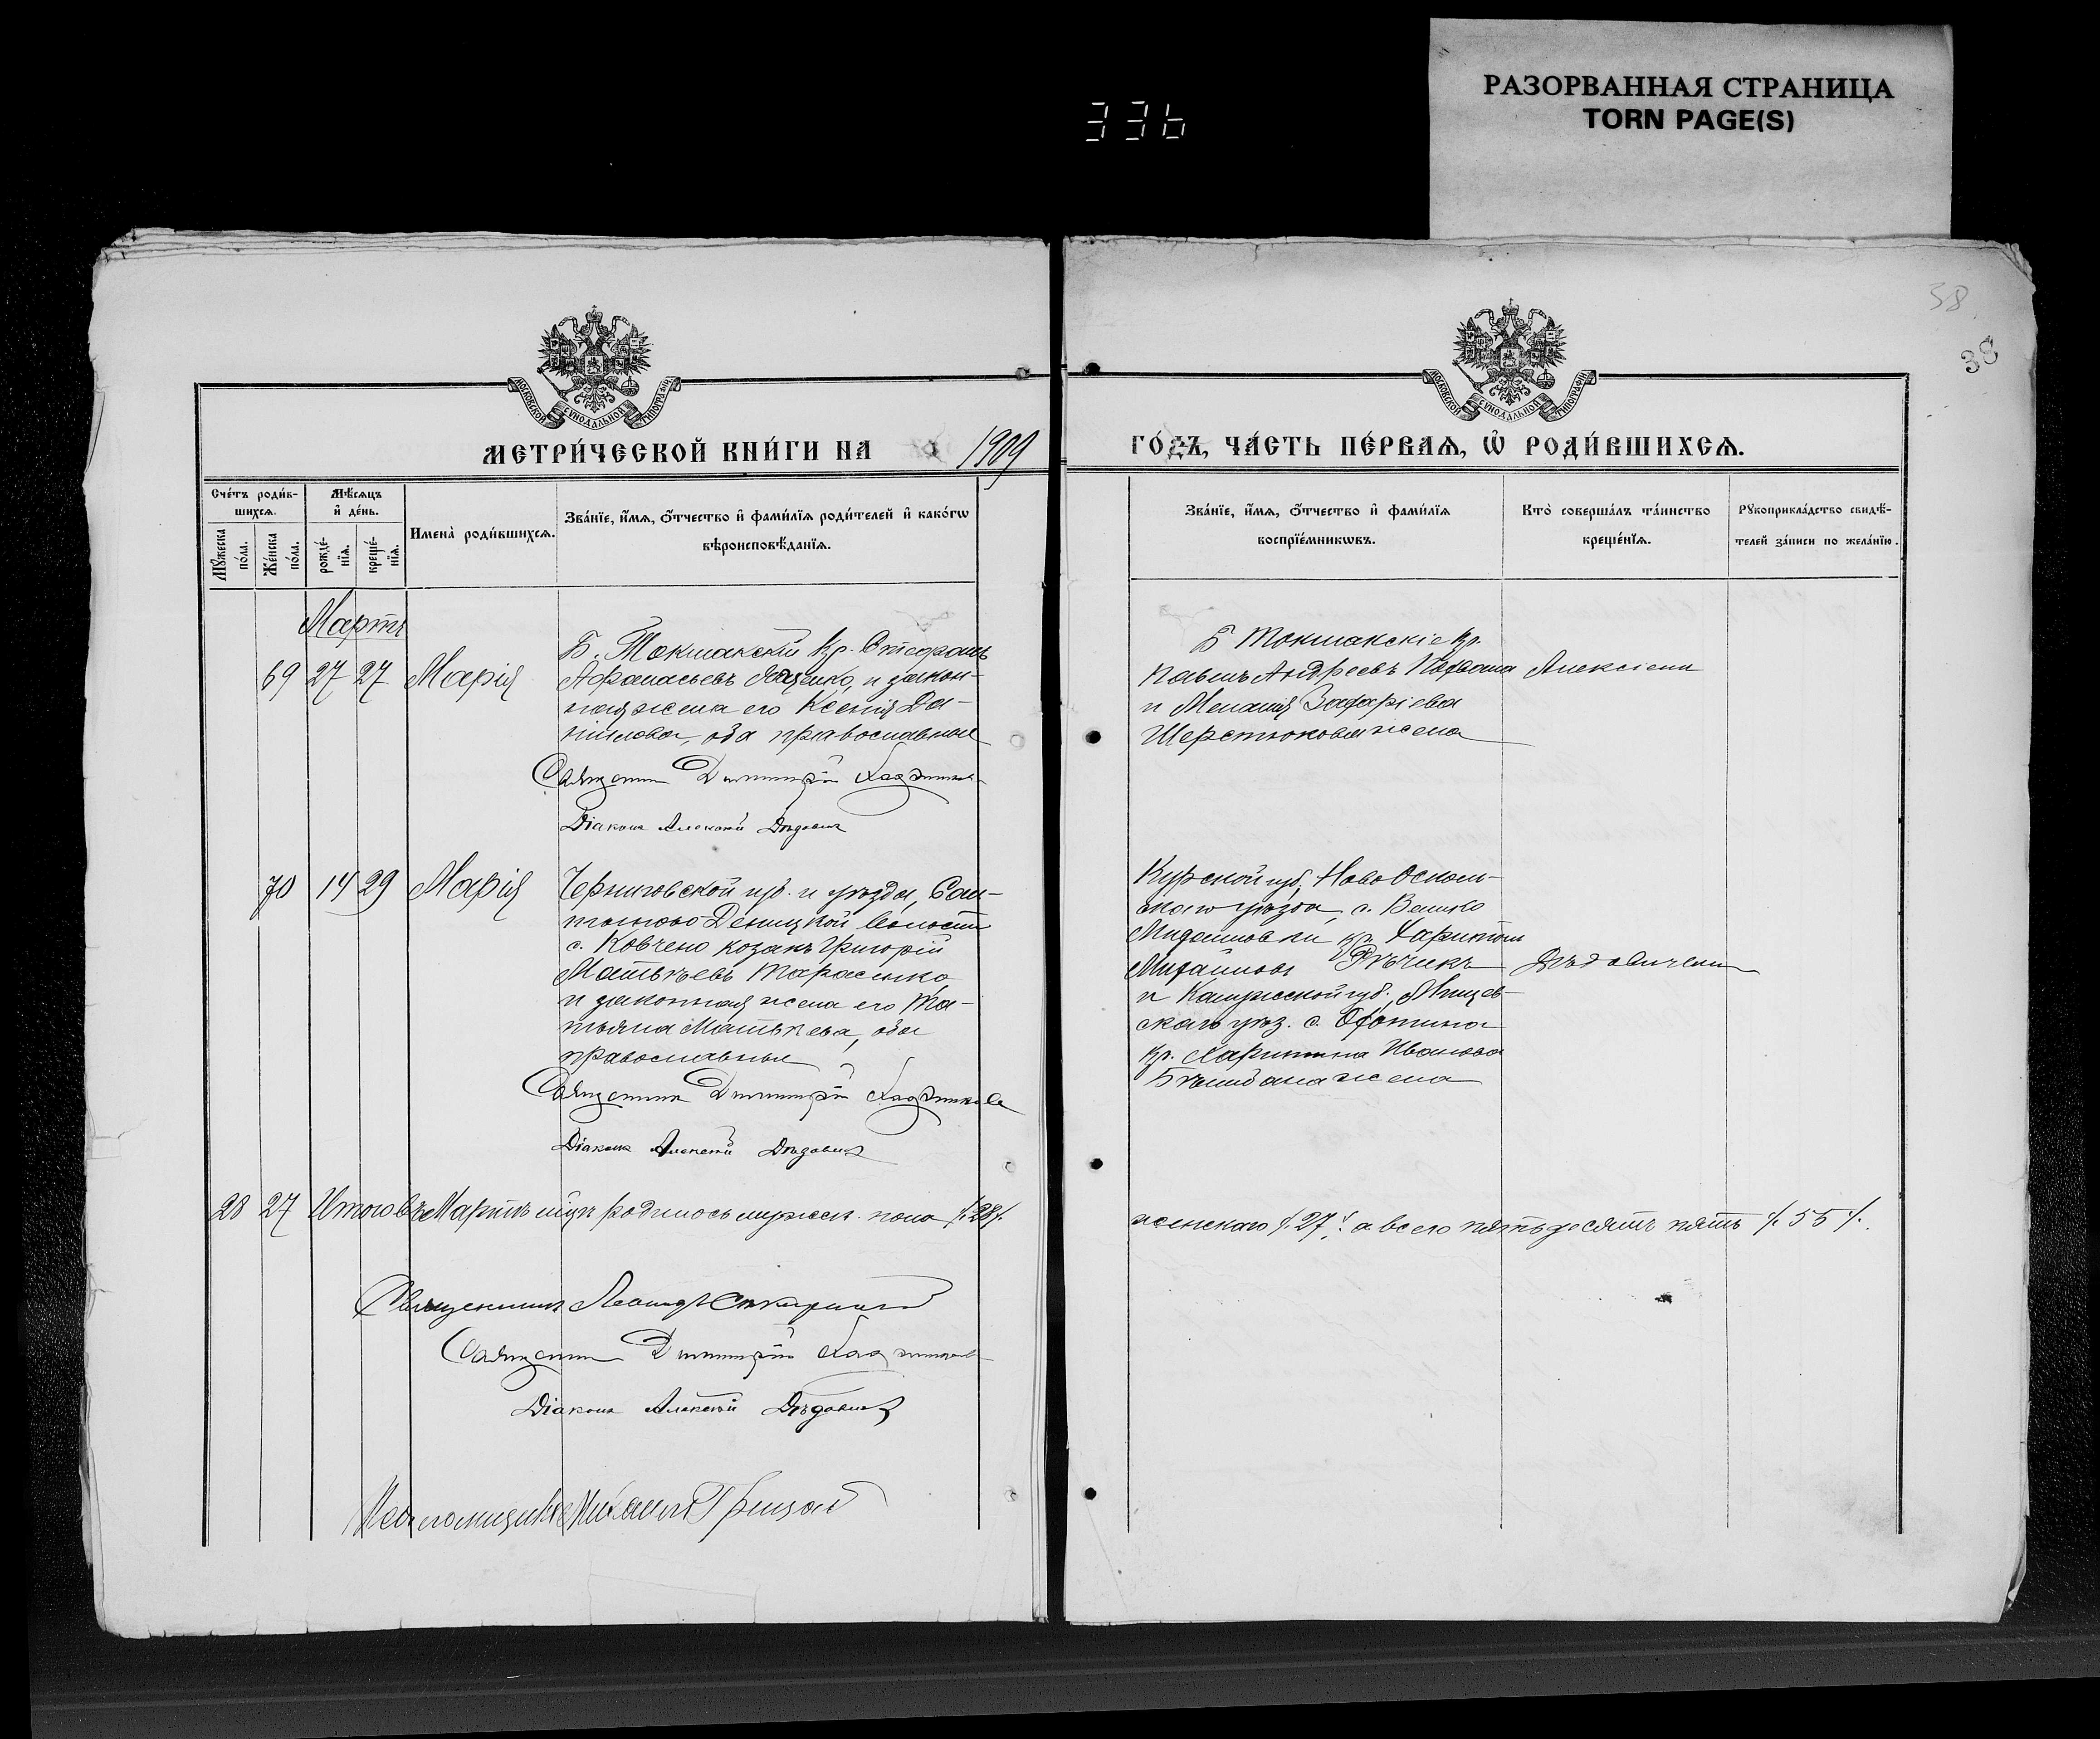 РАЗОРВАННАЯ СТРАНИЦА
TORN PAGE(S)
336
38
38
МОСКОВСКОЙ СУНОДАЛЬНОЙ ТИПОГРАФІИ
МОСКОВСКОЙ СУНОДАЛЬНОЙ ТИПОГРАФІИ
МЕТРИ́ЧЕСКОЙ КНИ́ГИ НА 1909
ГО́ДЪ, ЧА́СТЬ ПЕ́РВАѦ, Ѡ҆ РОДИ́ВШИХСѦ.
Сче́тъ роди́в-
шихсѧ.
Мꙋ́жеска по́ла.
Же́нска по́ла.
Мѣ́сѧцъ
и҆ де́нь.
рожде́-
нїѧ.
креще́-
нїѧ.
Имена̀ роди́вшихсѧ.
Зва́нїе, и҆́мѧ, ѻ҆́тчество и҆ фами́лїѧ роди́телей и҆ како́гѡ
вѣроисповѣ́данїѧ.
Зва́нїе, и҆́мѧ, ѻ҆́тчество и҆ фами́лїѧ
воспрїе́мникѡвъ.
Кто̀ соверша́лъ та́инство
креще́нїѧ.
Рꙋкоприкла́дство свидѣ́-
телей за́писи по жела́нїю.
Мартъ
69 27 27 Марія
Б. Токмакскій кр. Стефанъ
Афанасьевъ Яценко, и закон-
ная жена его Ксенія Да-
нилова, оба православные
Священник Димитрій
Діаконъ Алексій Дѣдовичъ
Б Токмакскіе кр.
Павелъ Андреевъ
и Меланія Захаріева
Шерстюкова жена
Алексіемъ
70 14 29 Марія
Черниговской губ. и уѣзда, Сал-
тыково Девицкой волости
с. Ковчено козакъ Григорій
Матвѣевъ Тарасенко
и законная жена его Та-
тьяна Матвѣева, оба
православные
Священник Димитрій
Діаконъ Алексій Дѣдовичъ
Курской губ., Ново Осколь-
скаго уѣзда, с. Велико
Михайловки кр. Харитонъ
Михайловъ Рѣчикъ
и Калужской губ.,
скаго уѣз. с.
кр. Харитина Иванова
жена
Дѣдовичемъ
28 27 Итого въ Мартѣ мцѣ родилось мужеск. пола /:28/:
женскаго /:27/: а всего пятьдесятъ пять /:55/:.
Священникъ Леонидъ
Священник Димитрій
Діаконъ Алексій Дѣдовичъ
Псаломщикъ Михаилъ Грицай